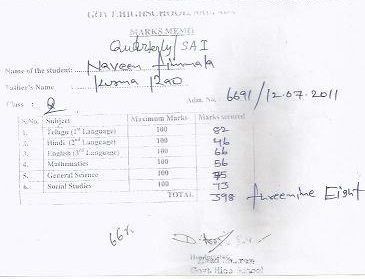 GOVT.HIGHSCHOOL
MARKS MEMO
Quarterly / SAI
Name of the student: Naveen
Father's Name : Rao
Class : 8 Adm. No. : 6691 / 12.07.2011
S.No. Subject Maximum Marks Marks secured
1. Telugu (1st Language) 100 82
2. Hindi (2nd Language) 100 46
3. English (3rd Language) 100 66
4. Mathematics 100 56
5. General Science 100 75
6. Social Studies 100 73
TOTAL 398 threenine Eight
66%
Govt High School